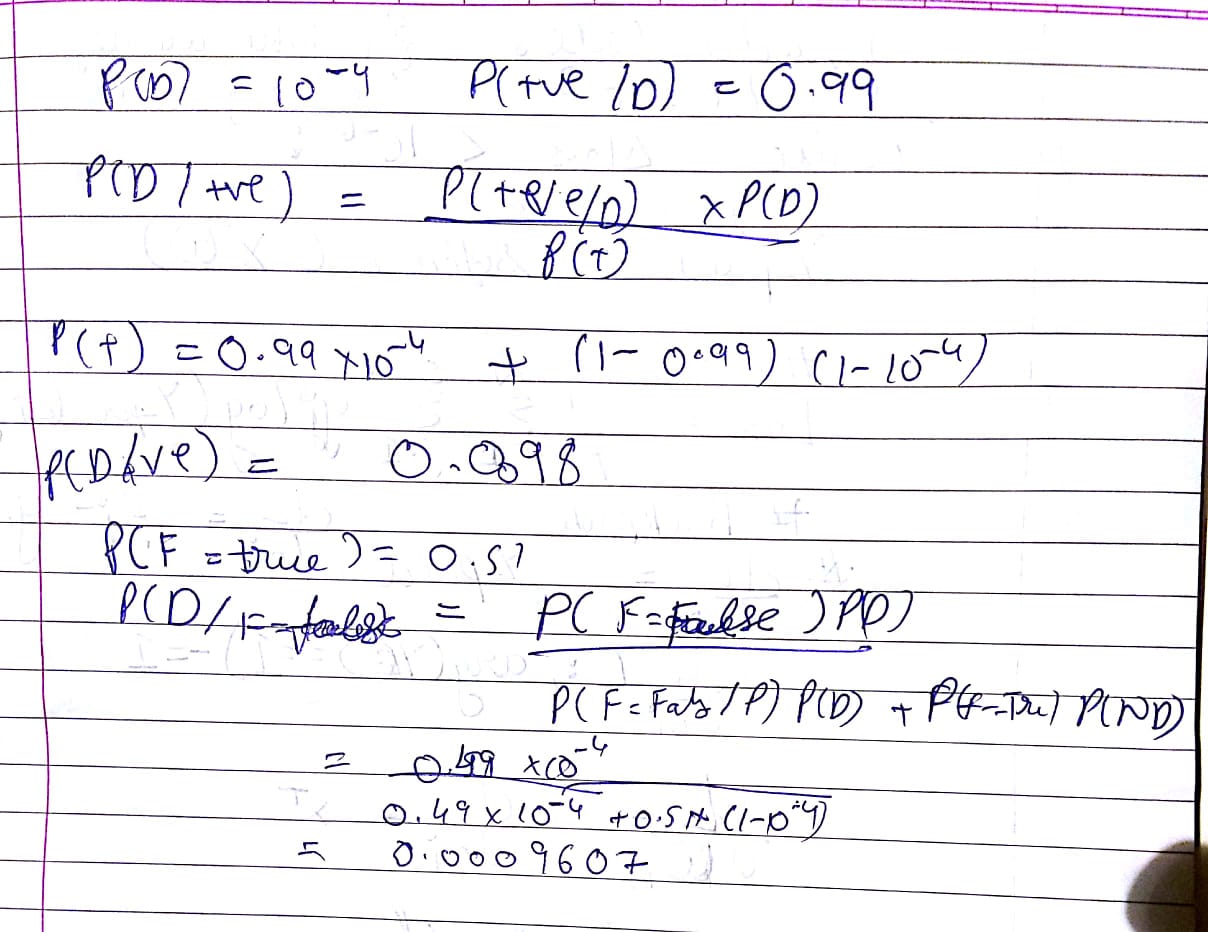 P(D) = 10⁻⁴ P(+ve/D) = 0.99
P(D/+ve) = P(+ve/D) × P(D)
P(+)
P(+) = 0.99 × 10⁻⁴ + (1 - 0.99) (1 - 10⁻⁴)
P(D/+ve) = 0.0098
P(F = true) = 0.51
P(D/F = false = P(F = False) P(D)
P(F = Fals/D) P(D) + P(F = Tru) P(ND)
= 0.49 × 10⁻⁴
0.49 × 10⁻⁴ + 0.51 × (1 - 10⁻⁴)
= 0.0009607